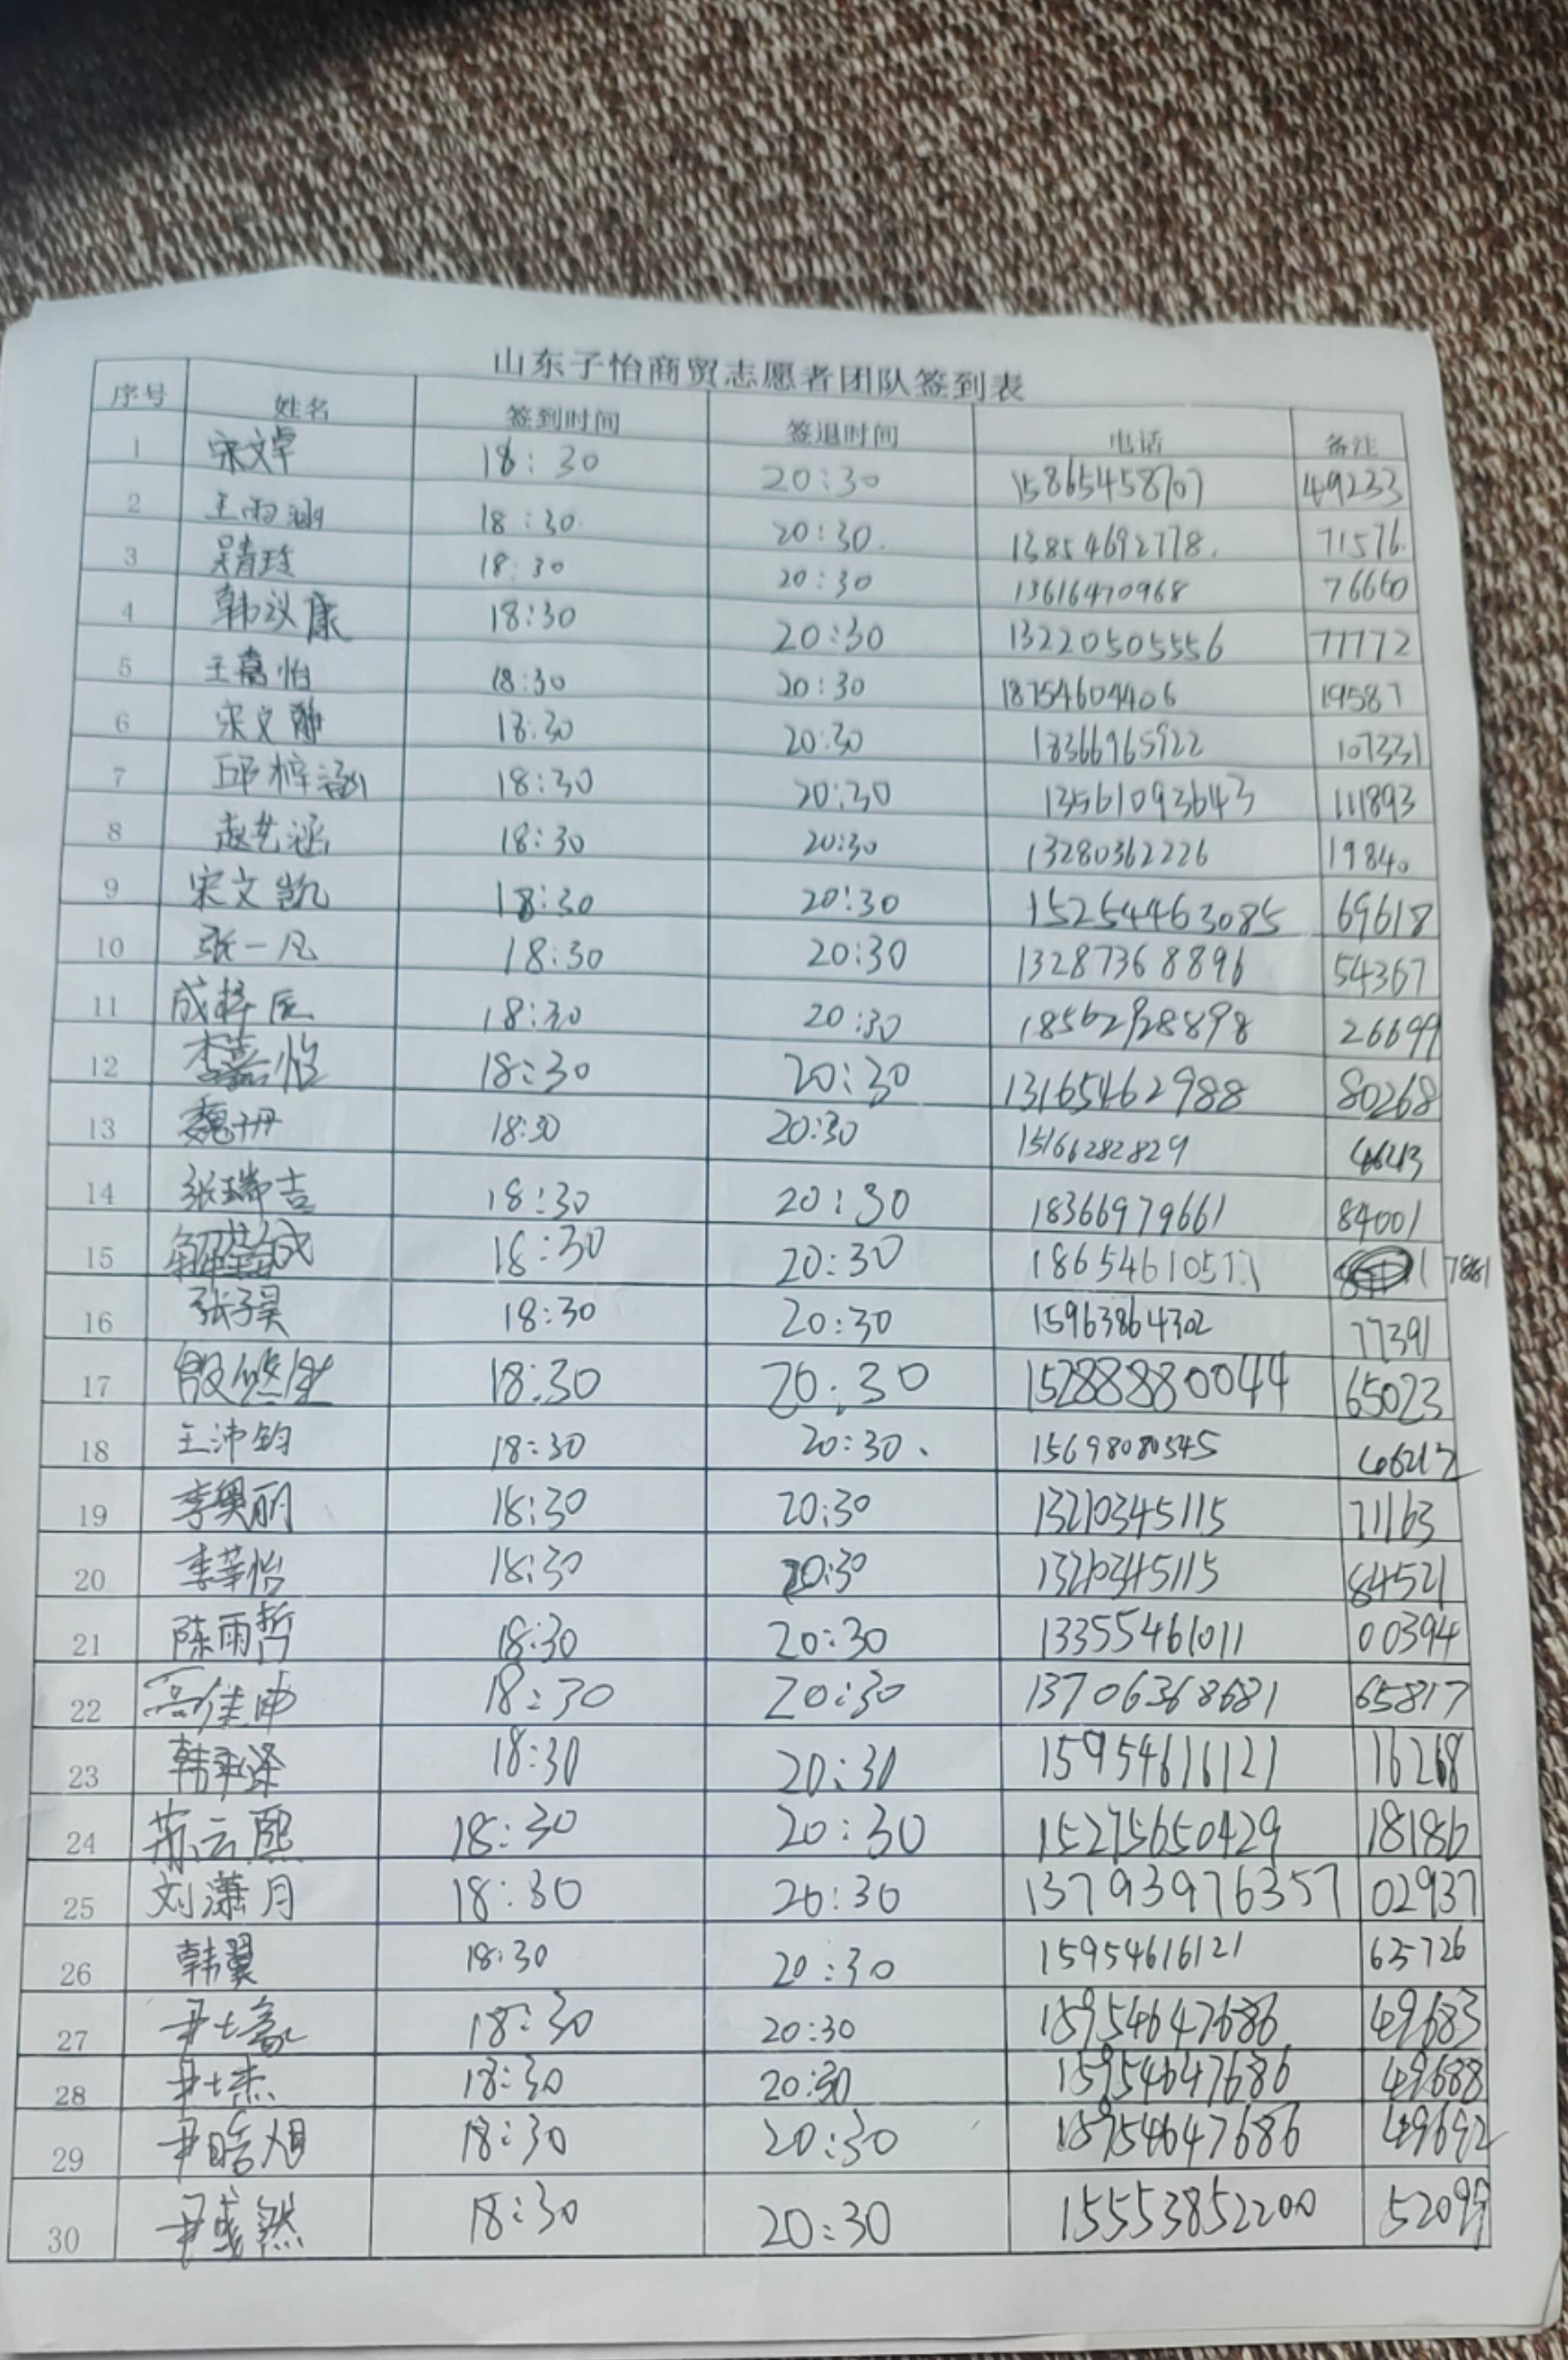 山东子怡商贸志愿者团队签到表
序号 姓名 签到时间 签退时间 电话 备注
1 宋文卓 18:30 20:30 15865458707 49233
2 王雨涵 18:30 20:30 13854692778 71576
3 吴青珐 18:30 20:30 13616470968 76660
4 韩议康 18:30 20:30 13220505556 77772
5 王嘉怡 18:30 20:30 18754604406 19587
6 宋文静 18:30 20:30 18366965922 107331
7 邱梓涵 18:30 20:30 13561093643 111893
8 赵艺涵 18:30 20:30 13280362226 19840
9 宋文凯 18:30 20:30 15254463085 69618
10 张一凡 18:30 20:30 13287368896 54367
11 成梓辰 18:30 20:30 18562928898 26699
12 李嘉怡 18:30 20:30 13165462988 80268
13 魏子丹 18:30 20:30 15166282829
14 张瑞吉 18:30 20:30 18366979661 84001
15 18:30 20:30
16 张子昊 18:30 20:30 15963864302 77391
17 殷悠生 18:30 20:30 15288880044 65023
18 王沛钧 18:30 20:30 15698080545 46212
19 李奥丽 18:30 20:30 13210345115 71163
20 李莘怡 18:30 20:30 13210345115 84521
21 陈雨哲 18:30 20:30 13355461011 00394
22 18:30 20:30 13706368681 65817
23 韩承泽 18:30 20:30 15954616121 16268
24 苏云熙 18:30 20:30 15275650429 18186
25 刘潇月 18:30 20:30 13793976357 02937
26 韩翼 18:30 20:30 15954616121 65726
27 尹士豪 18:30 20:30 15954647686 49683
28 尹士杰 18:30 20:30 15954647686 49688
29 尹皓旭 18:30 20:30 15954647686 49692
30 尹彧然 18:30 20:30 15553852200 52099